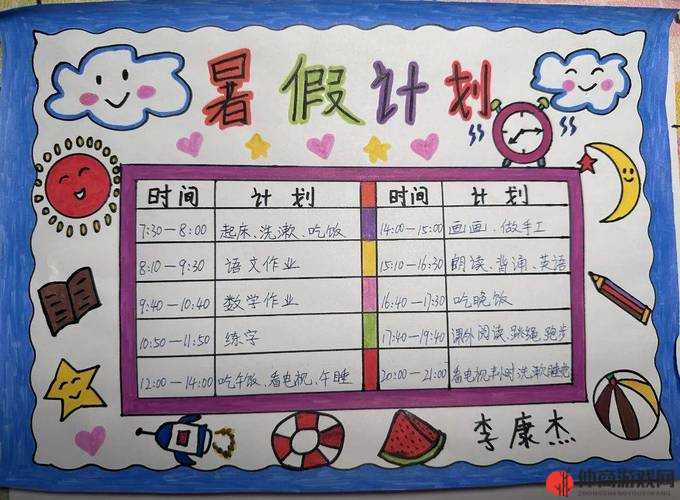 暑假计划
时间 计划 时间 计划
7:30—8:00 起床、洗漱、吃饭 14:00—15:00 画画、做手工
8:10—9:30 语文作业 15:10—16:30 朗读、背诵、英语
9:40—10:40 数学作业 16:40—17:30 吃晚饭
10:50—11:50 练字 17:40—19:40 课外阅读、跳绳、跑步
12:00—14:00 吃午饭、看电视、午睡 20:00—21:00 看电视半小时洗漱睡觉
李康杰
仲商游戏网